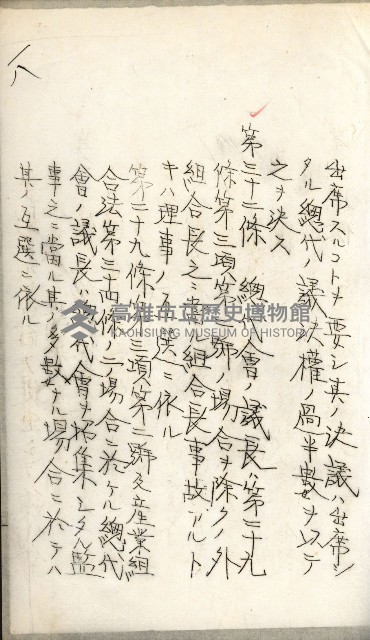 出席スルコトヲ要シ其ノ決議ハ出席シ
タル總代ノ議決權ノ過半數ヲ以テ
之ヲ決ス
第三十二條 總代會ノ議長ハ第二十九
條第三項第二號ノ場合ヲ除クノ外
組合長之ニ當ル組合長事故アルト
キハ理事ノ互選ニ依ル
第二十九條第三項第二號及産業組
合法第三十四條ノ二ノ場合ニ於ケル總代
會ノ議長ハ總代會ヲ招集シタル監
事之ニ當ル其ノ多數ナル場合ニ於テハ
其ノ互選ニ依ル
一八
高雄市立歷史博物館
KAOHSIUNG MUSEUM OF HISTORY